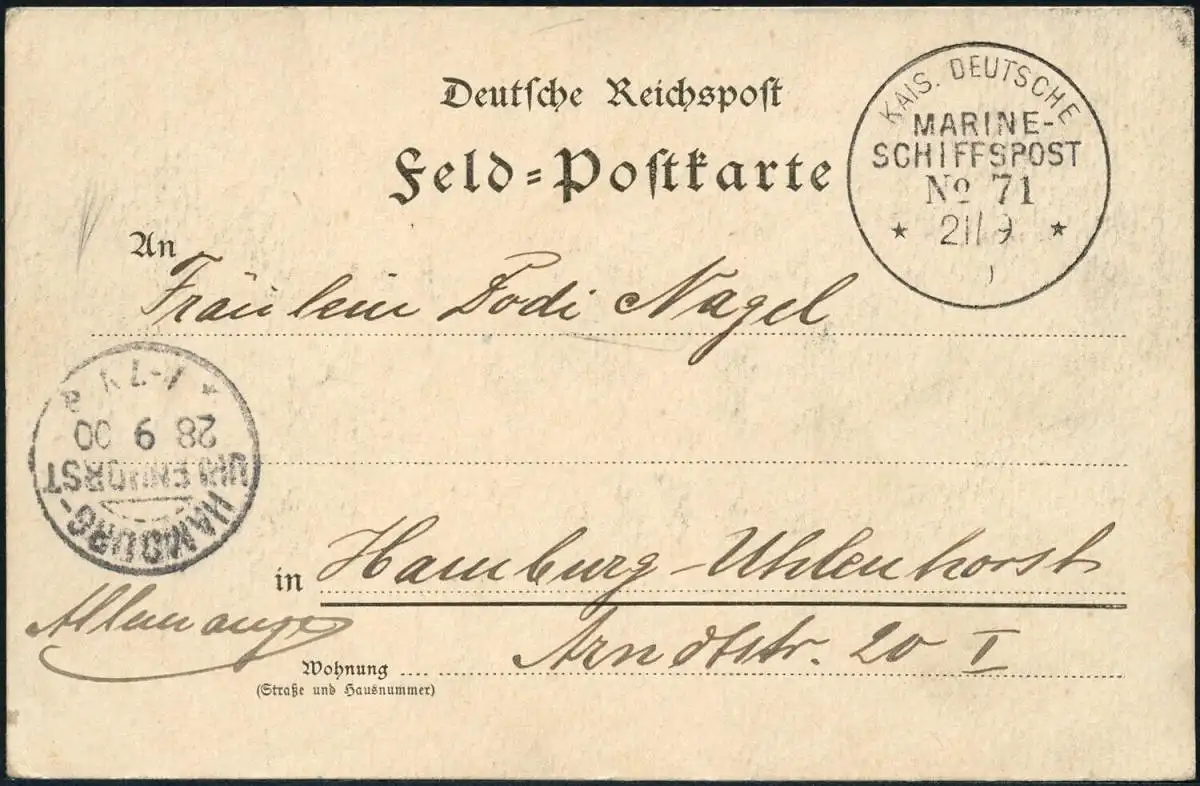 Deutsche Reichspost
Feld-Postkarte
KAIS. DEUTSCHE
MARINE-
SCHIFFSPOST
No 71
* 21/9 *
An
Fräulein Dodi Nagel
28 9 00
UHLENHORST
HAMBURG-
in Hamburg-Uhlenhorst
Allemange
Arndtstr. 20 I
Wohnung
(Straße und Hausnummer)